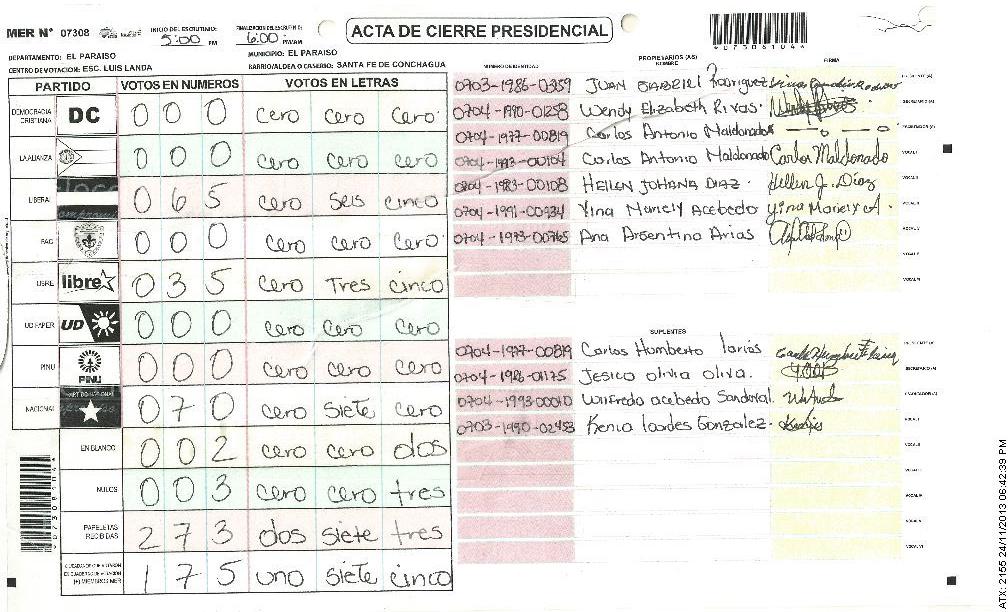 MER N° 07308
INICIO DEL ESCRUTINIO: 5:00 PM
FINALIZACION DEL ESCRUTINIO: 6:00 PM/AM
ACTA DE CIERRE PRESIDENCIAL
DEPARTAMENTO: EL PARAISO
MUNICIPIO: EL PARAISO
CENTRO DE VOTACION: ESC. LUIS LANDA
BARRIO/ALDEA O CASERIO: SANTA FE DE CONCHAGUA
PARTIDO VOTOS EN NUMEROS VOTOS EN LETRAS
DEMOCRACIA CRISTIANA DC 0 0 0 cero cero cero
LA ALIANZA 0 0 0 cero cero cero
LIBERAL 0 6 5 cero seis cinco
PAC 0 0 0 cero cero cero
LIBRE libre 0 3 5 cero Tres cinco
UD FAPER UD 0 0 0 cero cero cero
PINU PINU 0 0 0 cero cero cero
NACIONAL 0 7 0 cero siete cero
EN BLANCO 0 0 2 cero cero dos
NULOS 0 0 3 cero cero tres
PAPELETAS RECIBIDAS 2 7 3 dos siete tres
(+) MIEMBROS MER 1 7 5 uno siete cinco
NUMERO DE IDENTIDAD
PROPIETARIOS (AS)
NOMBRE
FIRMA
0703-1986-0359 JUAN GABRIEL Rodriguez
0704-1990-01258 Wendy Elizabeth Rivas
0704-1977-00819 Carlos Antonio Maldonado
0704-1993-00104 Carlos Antonio Maldonado Carlos Maldonado
0704-1983-00108 HELLEN JOHANA DIAZ Hellen J. Díaz
0704-1991-00934 Yina Mariely Acebedo Yina Mariely A.
0704-1973-00765 Ana Argentina Arias
SUPLENTES
0704-1977-00819 Carlos Humberto larios
0704-1986-01175 Jesica olivia oliva.
0704-1993-00010 Wilfredo acebedo Sandoval
0703-1990-02453 Kenia lourdes Gonzalez.
ATX: 2155 24/11/2013 06:42:39 PM